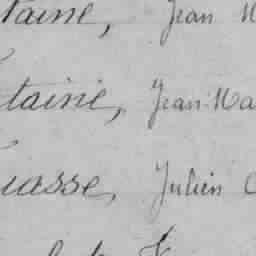 taine, Jean M
taine, Jean-Ma
iasse, Julien